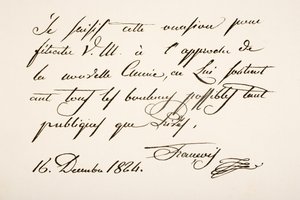 Je saisis cette occasion pour
féliciter V. M. à l'approche de
la nouvelle Année, en Lui
ant tous les bonheurs possibles tant
publiques que
16. Decembre 1824.